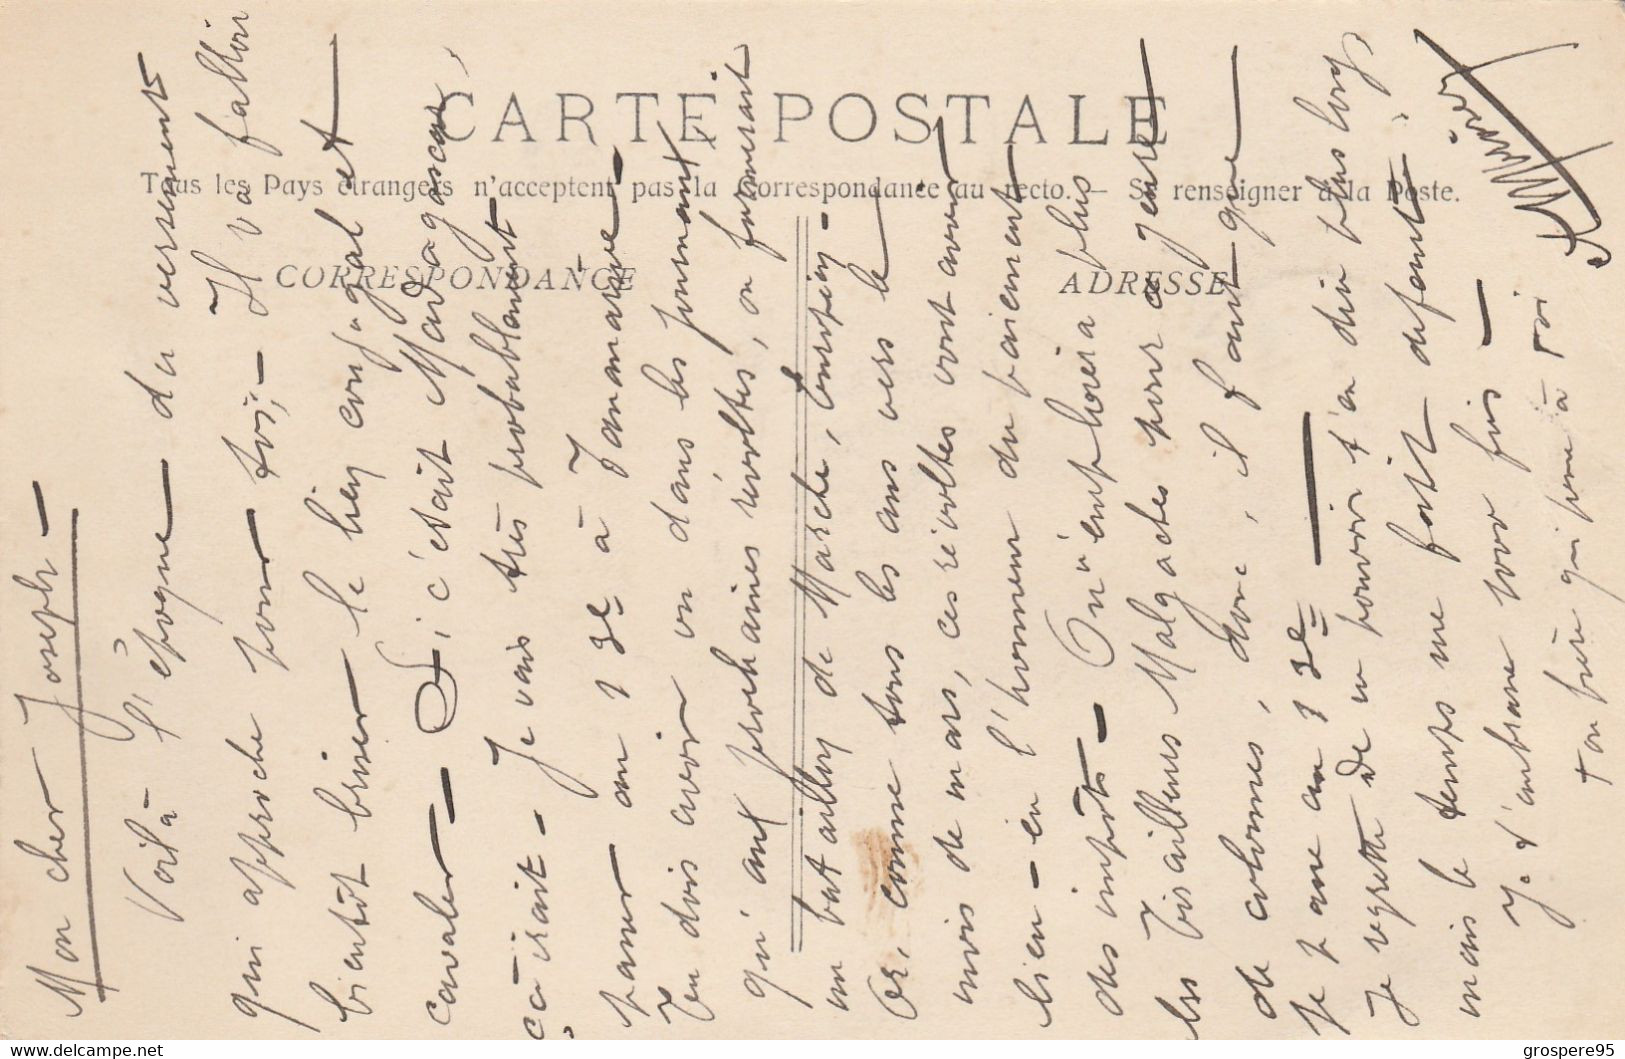 CARTE POSTALE
Tous les Pays étrangers n'acceptent pas la correspondance au recto. — Se renseigner à la Poste.
CORRESPONDANCE
ADRESSE
Mon cher Joseph —
Voilà l'époque — du versement
qui approche pour toi, — Il va falloir
bientôt briser le lien conjugal et
cavaler — Si c'était Madagascar,
ça irait — Je vais très probablement
passer au 13e à Tananarive —
Tu dois avoir vu dans les journaux
qu'aux prochaines révoltes, on formerait
un bataillon de Marche,
Or, comme tous les ans vers le
mois de mars, ces révoltes vont avoir
lieu — en l'honneur du paiement
des impôts — On n'emploiera plus
les Tirailleurs Malgaches pour ce genre
de colonnes, donc, il faut que
je passe au 13e —
Je regrette de ne pouvoir t'en dire plus long,
mais le temps me fait défaut.
Je t'embrasse fois —
ton frère qui pense à toi
grospere95
www.delcampe.net